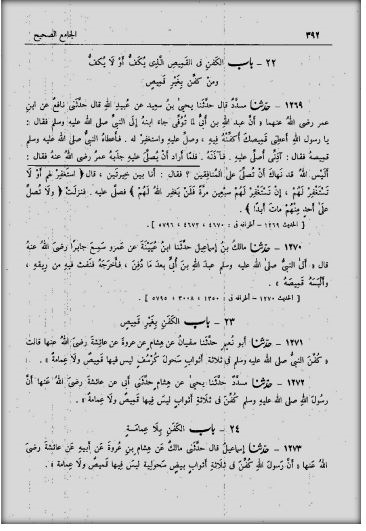 ٣٩٢ الجامع الصحيح
٢٢ - باب الكفن فى القميص الذى يُكَفُّ أَوْ لَا يُكَفُّ
ومن كفن بغير قميص
١٢٦٩ - حدثنا مسدَّد قال حدَّثنا يحيى بن سعيد عن عُبيدِ الله قال حدَّثنى نافعٌ عن ابنِ
عمر رضى الله عنهما « أنَّ عبدَ اللهِ بن أُبَىٍّ لما تُوفِّى جاء ابنهُ إلى النبىِّ صلى الله عليه وسلم فقال :
يا رسول الله أعطنى قميصكَ أُكَفِّنْهُ فيهِ ، وصلِّ عليهِ واستغفِرْ له . فأعطاهُ النبىُّ صلى الله عليه وسلم
قميصهُ فقال : آذِنِّى أُصلِّى عليه . فآذَنَهُ . فلما أراد أنْ يُصلِّىَ عليهِ جذَبَهُ عمرُ رضى اللهُ عنهُ فقال :
أَلَيسَ اللهُ قد نهاكَ أنْ تُصلِّىَ على المنافِقينَ ؟ فقال : أنا بينَ خِيرتَينِ ، قال ﴿ استَغفِرْ لهم أَوْ لَا
تَستغفِرْ لَهُمْ ، إِنْ تَستَغْفِرْ لَهُمْ سَبْعِينَ مرَّةً فَلَنْ يَغفِرَ اللهُ لَهُمْ ﴾ فصلَّى عليهِ . فنزلَتْ ﴿ ولَا تُصلِّ
عَلَى أحدٍ مِنْهُمْ مَاتَ أَبداً ﴾ .
[ الحديث ١٢٦٩ - أطرافه فى : ٤٦٧٠ ، ٤٦٧٢ ، ٥٧٩٦ ] .
١٢٧٠ - حدثنا مالكُ بنُ إسماعيل حدَّثنا ابنُ عُيَينةَ عن عمرو سَمِعَ جابراً رضىَ اللهُ عنهُ
قال « أتى النبىُّ صلى الله عليه وسلم عبدَ اللهِ بنَ أُبىٍّ بعدَ ما دُفِنَ ، فأخرَجَهُ فنفثَ فيهِ من ريقِهِ ،
وألبَسَهُ قميصَهُ » .
[ الحديث ١٢٧٠ - أطرافه فى : ١٣٥٠ ، ٣٠٠٨ ، ٥٧٩٥ ] .
٢٣ - باب الكَفَنِ بِغَيْرِ قَمِيصٍ
١٢٧١ - حدثنا أبو نُعيمٍ حدَّثنا سفيانُ عن هِشامٍ عن عروةَ عن عائشةَ رضىَ اللهُ عنها قالت
« كُفِّنَ النبىُّ صلى الله عليه وسلم فى ثلاثةِ أثوابٍ سَحولَ كُرْسُفٍ ليس فيها قميصٌ ولا عِمامةٌ » .
١٢٧٢ - حدثنا مسدَّد حدَّثنا يحيى عن هِشامٍ حدَّثنى أبى عن عائشةَ رضىَ اللهُ عنها أنَّ
رسولَ اللهِ صلى الله عليه وسلم كُفِّنَ فى ثلاثةِ أثوابٍ ليسَ فيها قميصٌ ولا عمامةٌ » .
٢٤ - باب الكَفَنِ بِلَا عِمَامَةٍ
١٢٧٣ - حدثنا إسماعيلُ قال حدَّثنى مالكٌ عن هِشامِ بنِ عُروةَ عن أبيهِ عن عائشةَ رضىَ
اللهُ عنها « أنَّ رسولَ اللهِ كُفِّنَ فى ثلاثةِ أثوابٍ بيضٍ سَحوليةٍ ليس فيها قميصٌ ولا عِمامة » .